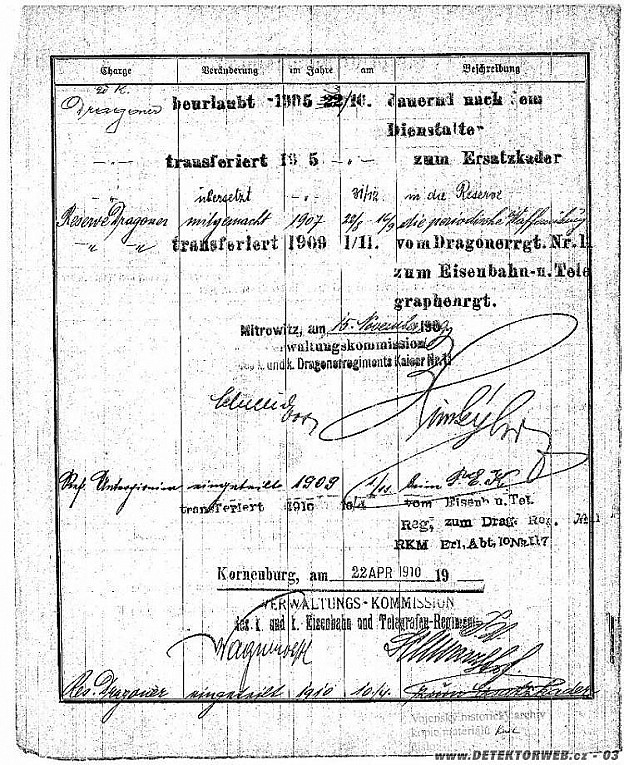 Charge Veränderung im Jahre am Beschreibung
Dragoner beurlaubt 1905 22/10. dauernd nach dem
Dienstalter
transferiert 1905 - „ - zum Ersatzkader
„ übersetzt - „ - 31/12. in die Reserve
Reserve Dragoner mitgemacht 1907 die periodische Waffenübung
„ „ transferiert 1909 1/11. vom Dragonerrgt. Nr. 11
zum Eisenbahn-u. Tele
graphenrgt.
Mitrowitz, am 15. November 1909
rwaltungskommission
des k. und k. Dragonerregiments Kaiser Nr. 11
Res. Unterpionier eingeteilt 1909 1/11. beim
transferiert 1910 10/4 vom Eisenb u. Tel.
Reg, zum Drag. Reg. Nr 11
RKM Erl. Abt. 10 Nr. 117
Korneuburg, am 22 APR 1910 19
VERWALTUNGS-KOMMISSION
des k. und k. Eisenbahn und Telegrafen-Regiments
Res. Dragoner eingeteilt 1910 10/4. beim
Vojenský historický archiv
kopie materiálů
www.DETEKTORWEB.cz - 03